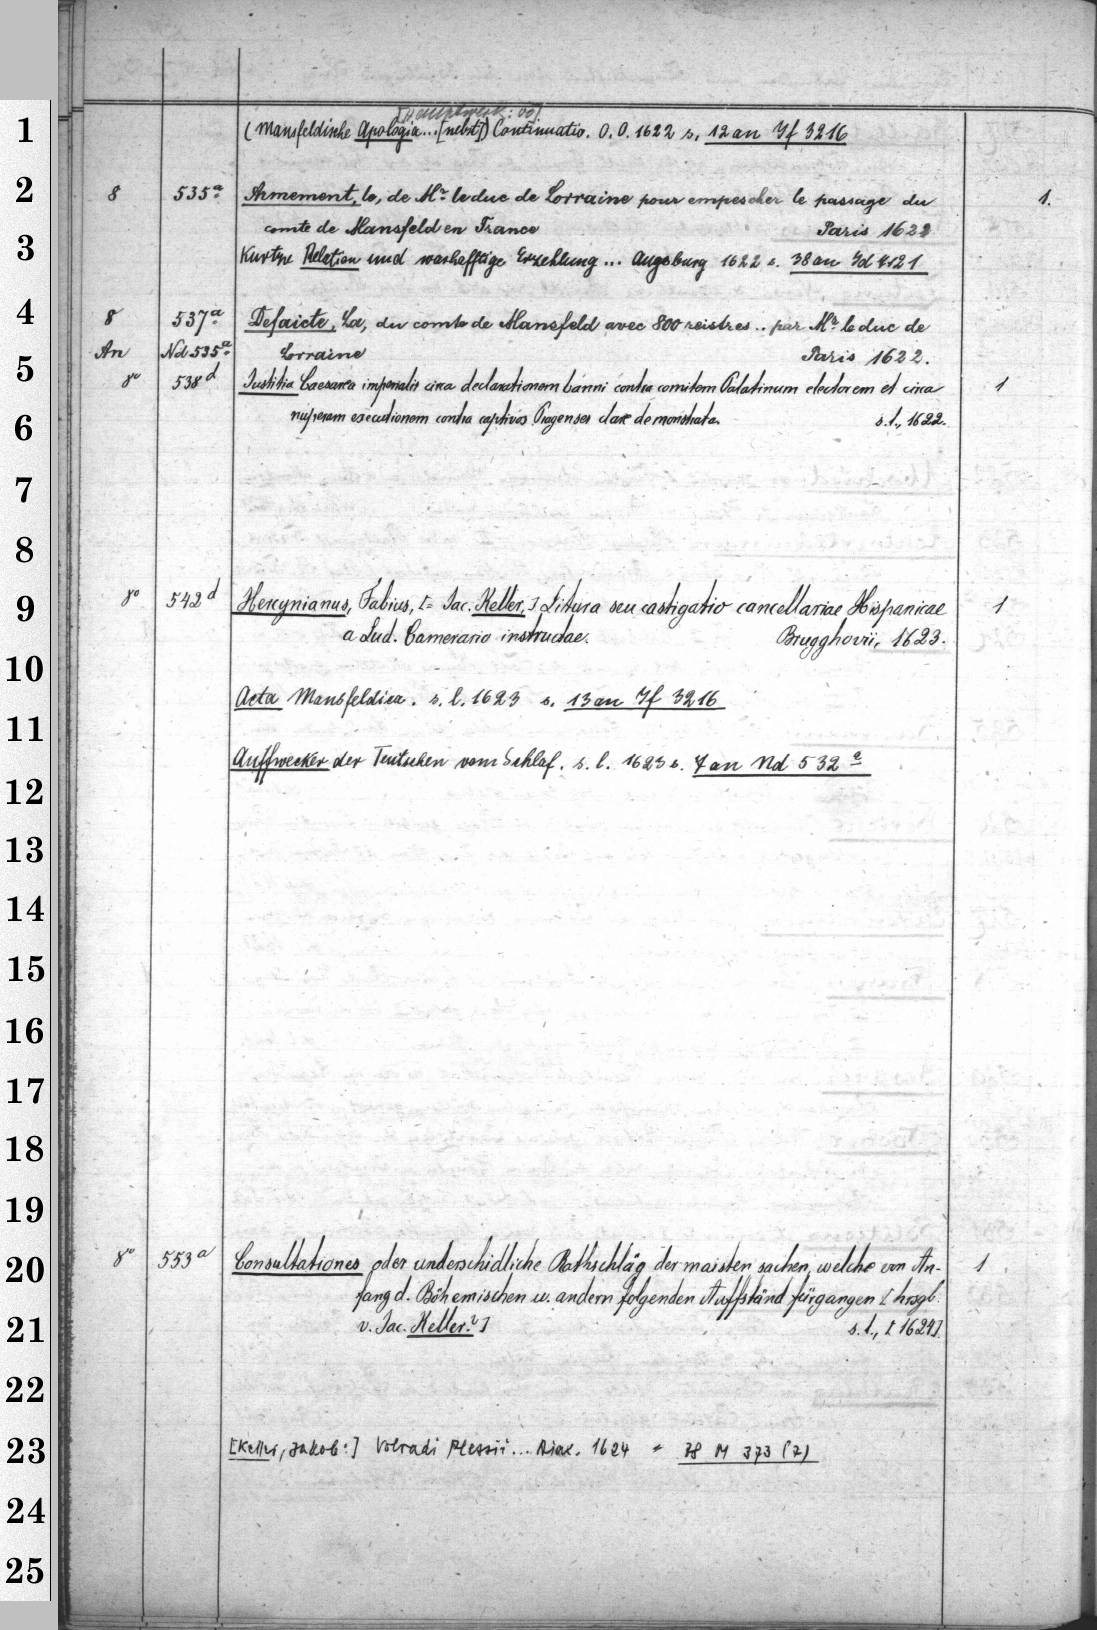 1
(Mansfeldische Apologia... [nebst]) Continuatio. O. O. 1622 s. 12 an Yf 3216
2
8 535a Armement, le, de Mr le duc de Lorraine pour empescher le passage du 1.
comte de Mansfeld en France Paris 1622
3
Kurtze Relation und warhafftige Erzehlung... Augsburg 1622 s. 38 an
4
8 537a Defaicte, La, du comte de Mansfeld avec 800 reistres.. par Mr le duc de
An Nd 535a Lorraine Paris 1622.
5
8o 538d Justitia Caesarea imperialis circa declarationem banni contra comitem Palatinum electorem et circa 1
6
nuperam executionem contra captivos Pragenses clare demonstrata. s. l., 1622.
7
8
9
8o 542d Hercynianus, Fabius, [= Jac. Keller,] Litura seu castigatio cancellariae Hispanicae 1
a Lud. Camerario instructae. Brugghovii, 1623.
10
Acta Mansfeldica. s. l. 1623 s. 13 an Yf 3216
11
Auffwecker der Teutschen vom Schlaf. s. l. 1623 s. 7 an Nd 532a
12
13
14
15
16
17
18
19
20
8o 553a Consultationes oder underschidliche Rathschläg der maisten sachen, welche von An- 1
fang d. Böhemischen u. andern folgenden Auffständ fürgangen [hrsgb.
21
v. Jac. Keller?] s. l., [1624]
22
23
[Keller, Jakob:] Volradi Plessii... 1624 = 38 M 373 (7)
24
25